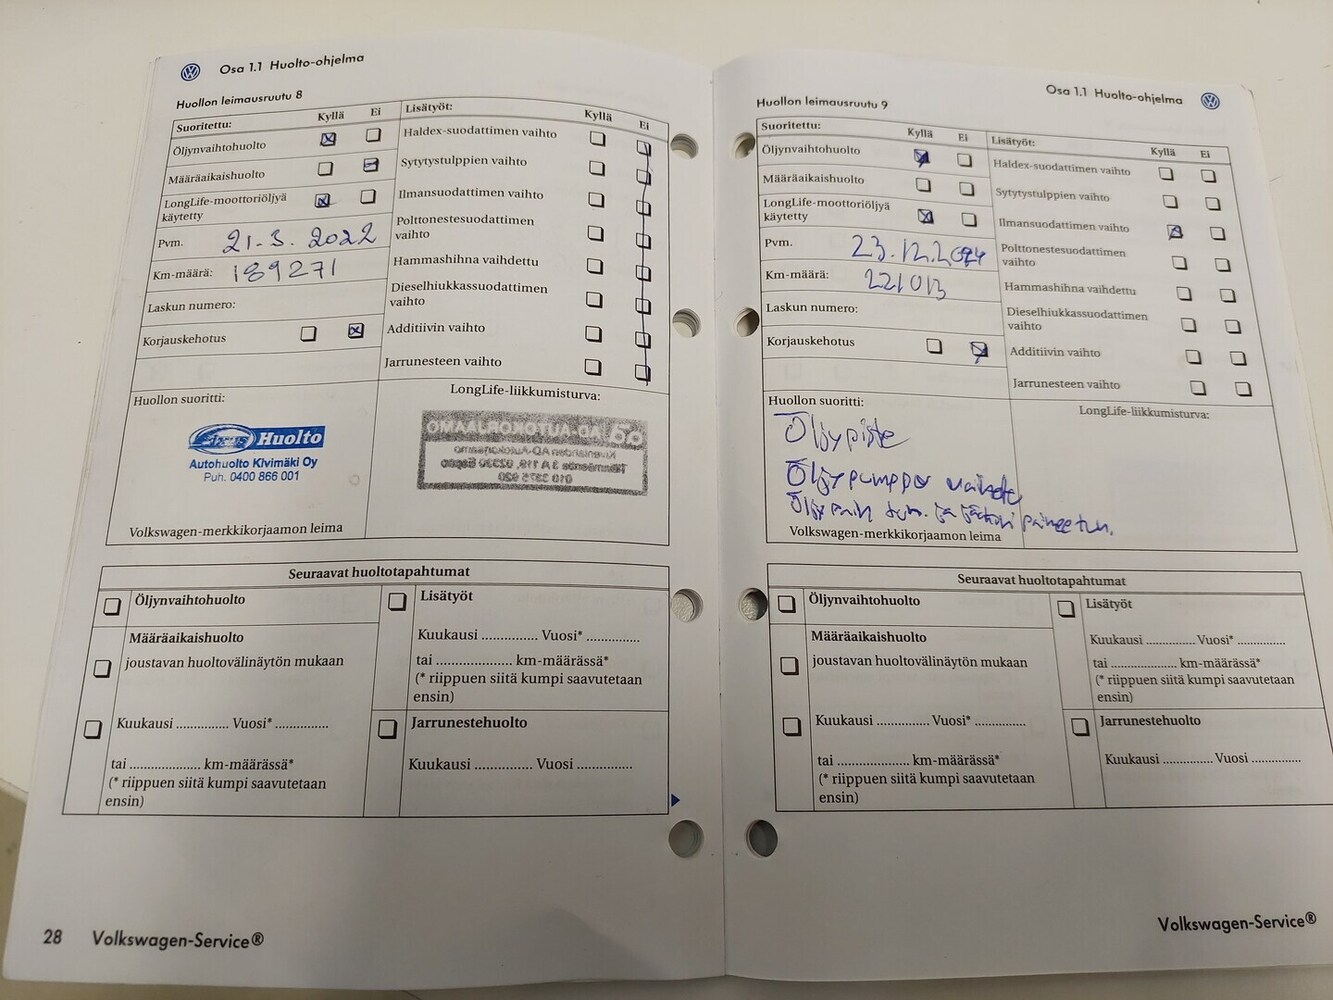 Osa 1.1 Huolto-ohjelma
Huollon leimausruutu 8
Suoritettu: Kyllä Ei
Öljynvaihtohuolto
Määräaikaishuolto
LongLife-moottoriöljyä
käytetty
Pvm. 21.3.2022
Km-määrä: 189271
Laskun numero:
Korjauskehotus
Lisätyöt: Kyllä Ei
Haldex-suodattimen vaihto
Sytytystulppien vaihto
Ilmansuodattimen vaihto
Polttonestesuodattimen
vaihto
Hammashihna vaihdettu
Dieselhiukkassuodattimen
vaihto
Additiivin vaihto
Jarrunesteen vaihto
Huollon suoritti:
Sixus Huolto
Autohuolto Kivimäki Oy
Puh. 0400 866 001
Volkswagen-merkkikorjaamon leima
LongLife-liikkumisturva:
AD-AUTOKORJAAMO
Seuraavat huoltotapahtumat
Öljynvaihtohuolto
Määräaikaishuolto
joustavan huoltovälinäytön mukaan
Kuukausi ............... Vuosi* ..............
tai .................... km-määrässä*
(* riippuen siitä kumpi saavutetaan
ensin)
Lisätyöt
Kuukausi ............... Vuosi* ..............
tai ..................... km-määrässä*
(* riippuen siitä kumpi saavutetaan
ensin)
Jarrunestehuolto
Kuukausi ............... Vuosi ...............
28 Volkswagen-Service®
Osa 1.1 Huolto-ohjelma
Huollon leimausruutu 9
Suoritettu: Kyllä Ei
Öljynvaihtohuolto
Määräaikaishuolto
LongLife-moottoriöljyä
käytetty
Pvm. 23.12.2024
Km-määrä: 221013
Laskun numero:
Korjauskehotus
Lisätyöt: Kyllä Ei
Haldex-suodattimen vaihto
Sytytystulppien vaihto
Ilmansuodattimen vaihto
Polttonestesuodattimen
vaihto
Hammashihna vaihdettu
Dieselhiukkassuodattimen
vaihto
Additiivin vaihto
Jarrunesteen vaihto
Huollon suoritti:
Öljypiste
Öljypumppu vaihdettu
Volkswagen-merkkikorjaamon leima
LongLife-liikkumisturva:
Seuraavat huoltotapahtumat
Öljynvaihtohuolto
Määräaikaishuolto
joustavan huoltovälinäytön mukaan
Kuukausi ............... Vuosi* ..............
tai .................... km-määrässä*
(* riippuen siitä kumpi saavutetaan
ensin)
Lisätyöt
Kuukausi .............. Vuosi* ..............
tai .................... km-määrässä*
(* riippuen siitä kumpi saavutetaan
ensin)
Jarrunestehuolto
Kuukausi .............. Vuosi ..............
Volkswagen-Service®